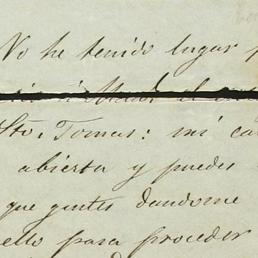 No he tenido lugar
Sto. Tomas: mi
abierta y puedes
que gustes dandome
ello para proceder